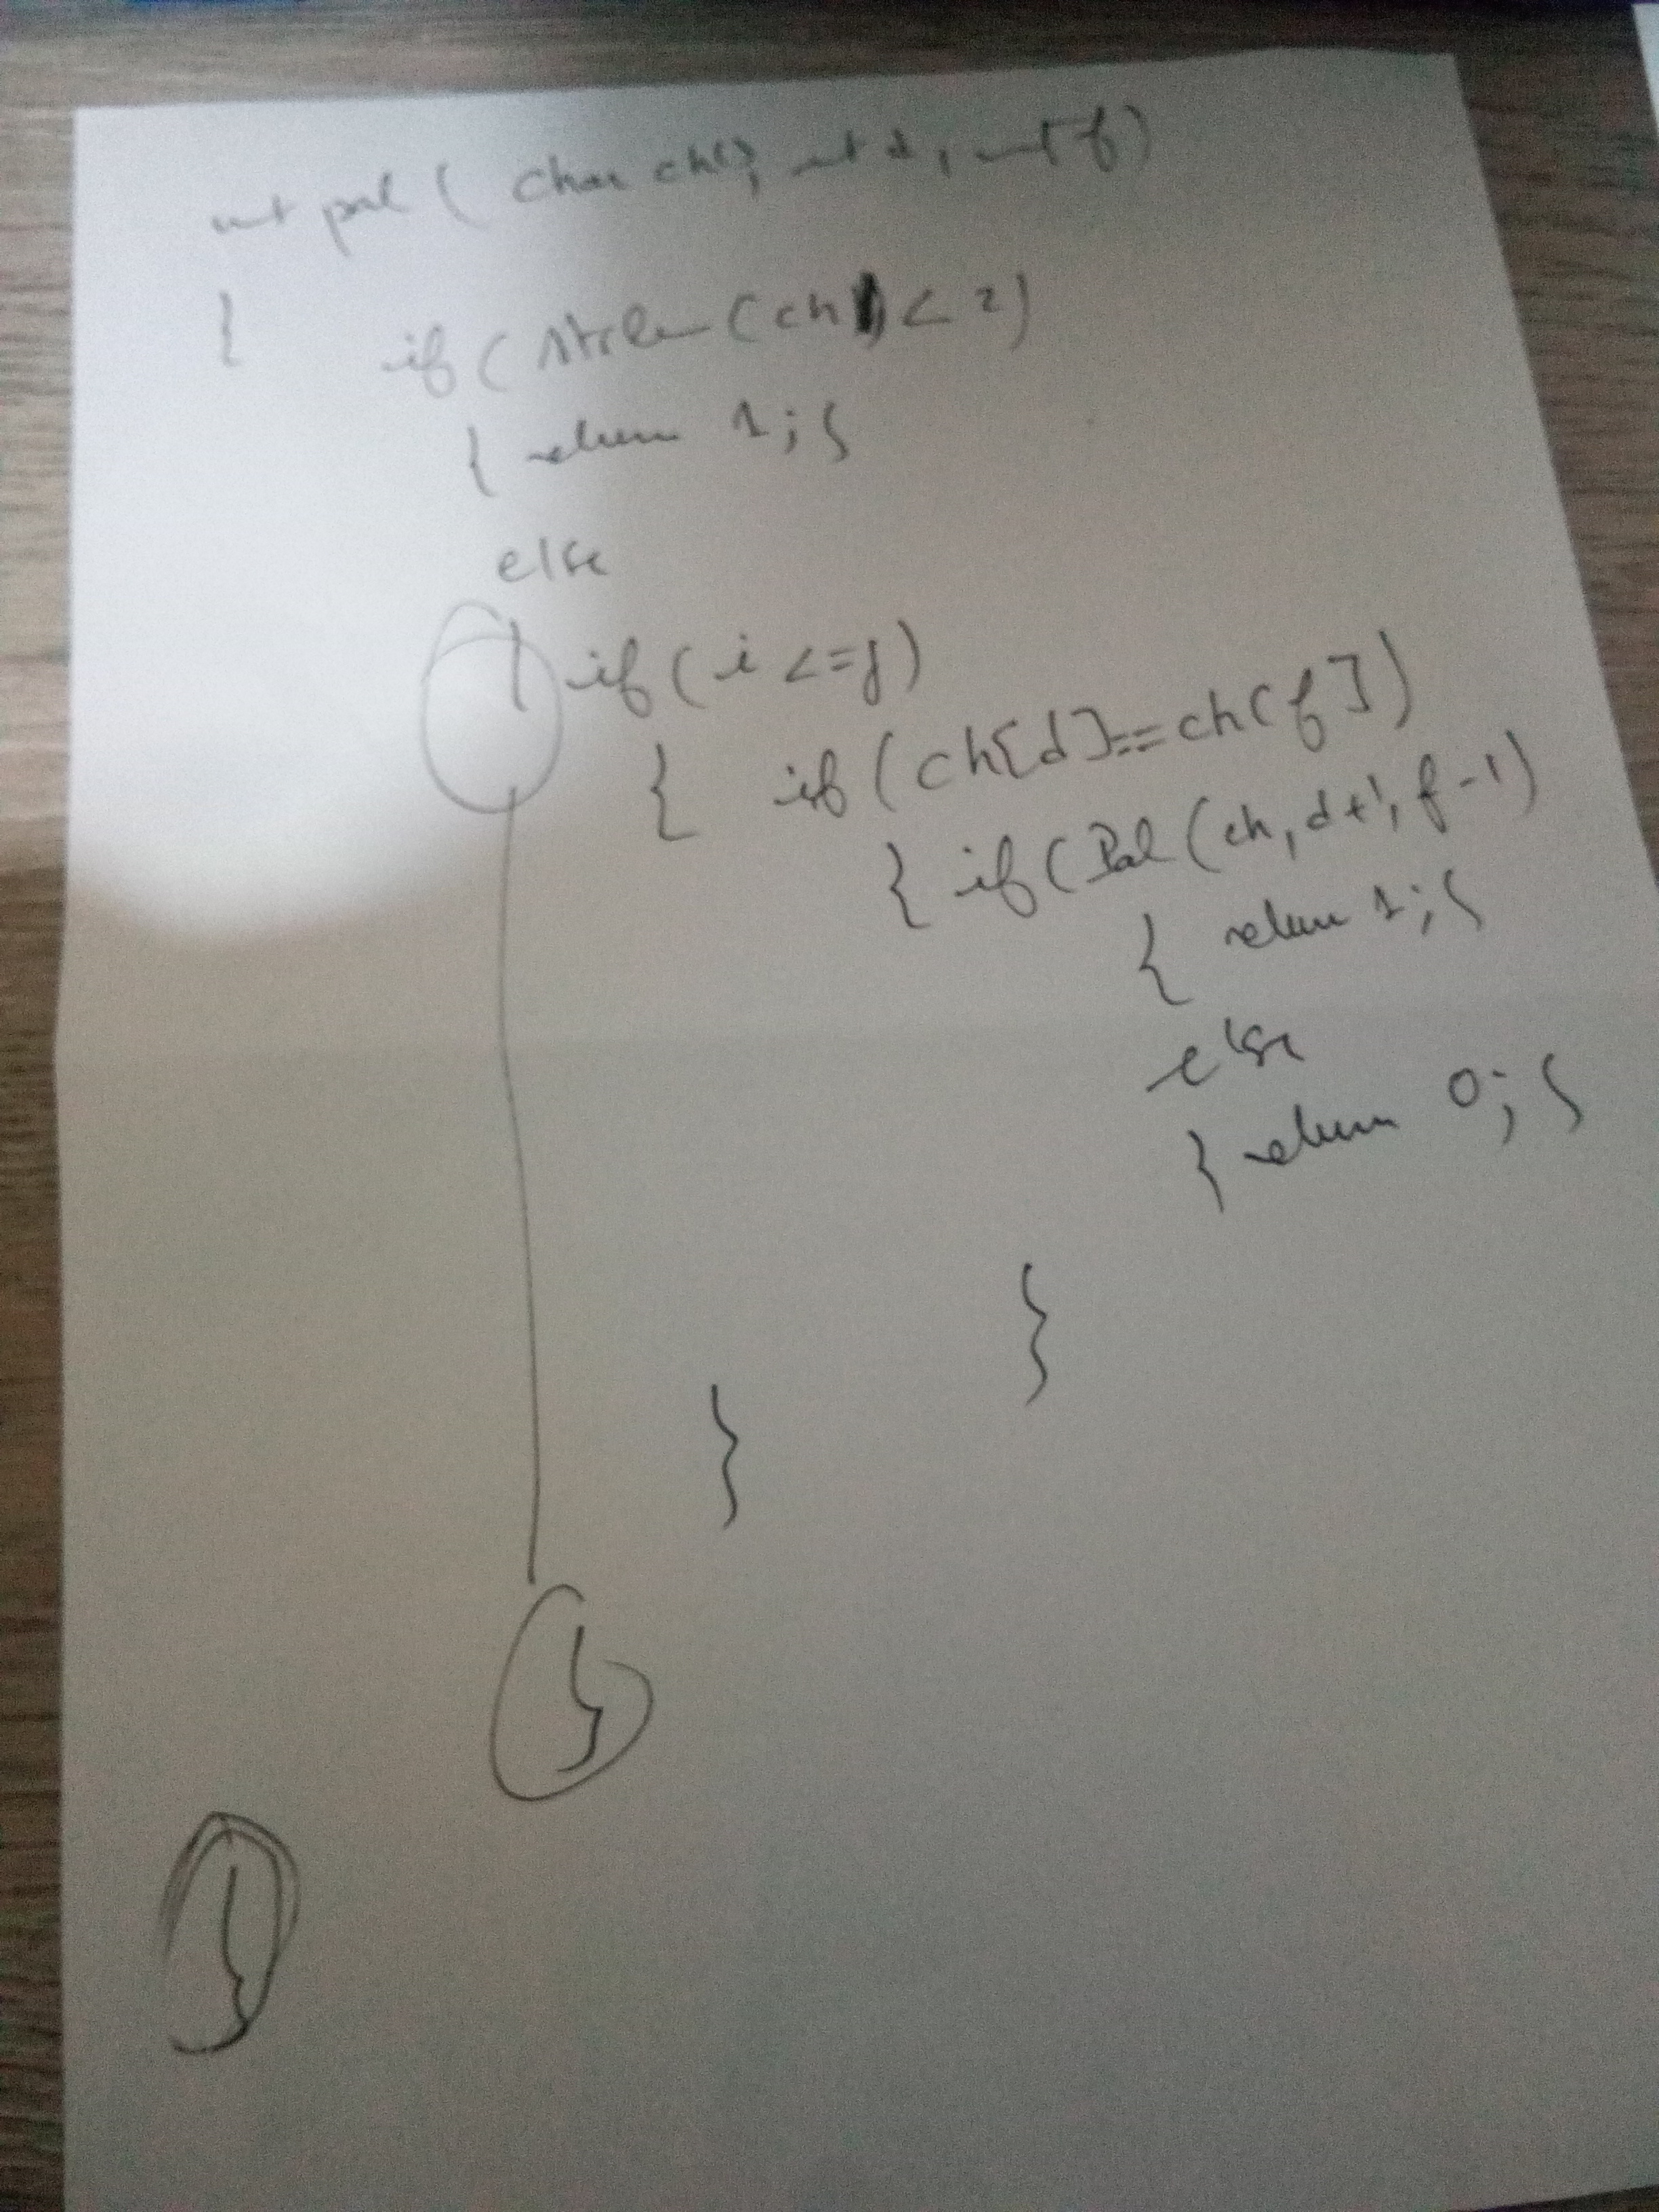 int pal ( char ch[], int d, int f)
{ if ( strlen (ch) < 2)
{ return 1; }
else
{ if ( i <= j )
{ if ( ch[d] == ch[f])
{ if ( Pal ( ch, d+1, f-1)
{ return 1; }
else
{ return 0; }
}
}
}
}